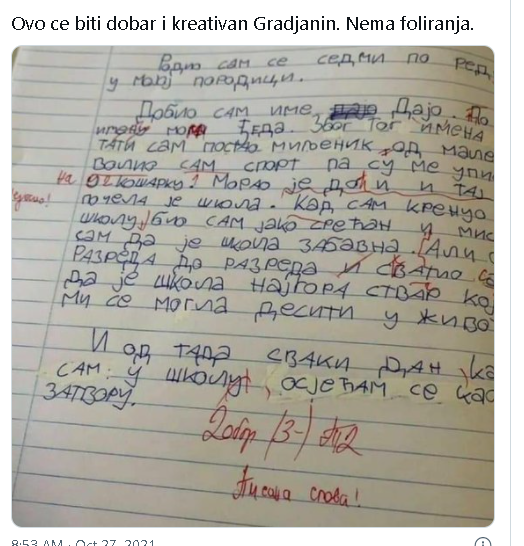 Ovo ce biti dobar i kreativan Gradjanin. Nema foliranja.
Родио сам се седми по ред
у мојој породици.
Добио сам име Дајо. По
имену мог ђеда. Због тог имена
тати сам постао миљеник од мале
волио сам спорт па су ме упи
на кошарку! Морао је доћи и тај
почела је школа. Кад сам кренуо
школу, био сам јако срећан у мис
сам да је школа забавна. Али
разреда до разреда и сватио
да је школа најгора ствар кој
ми се могла десити у живо
И од тада сваки дан, ка
сам у школу, осјећам се као
затвору.
Добар (3-)
Писана слова!
8:53 AM · Oct 27, 2021